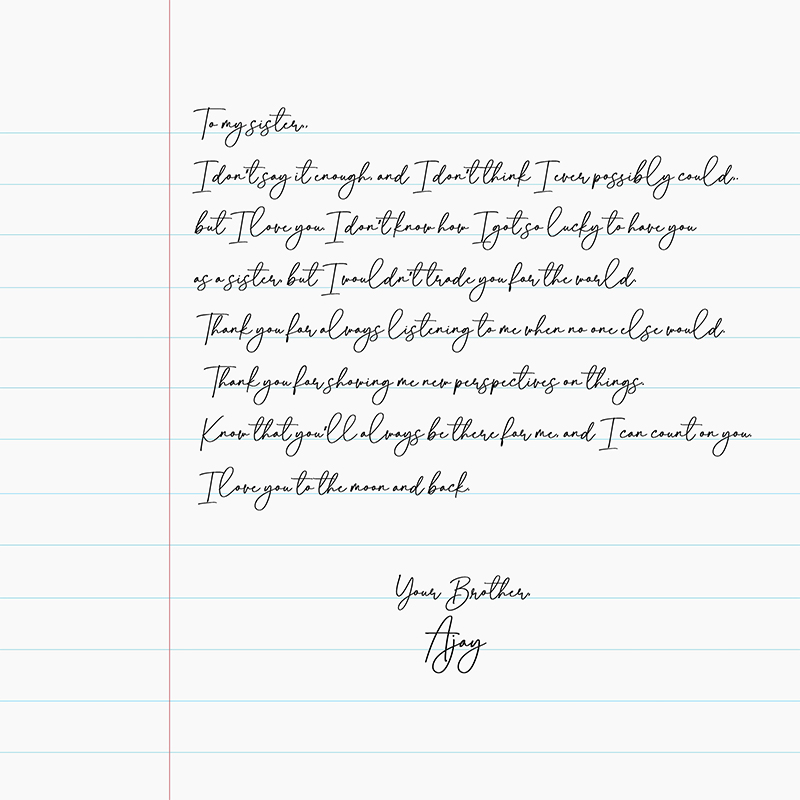 To my sister,.
I don't say it enough, and I don't think I ever possibly could,.
but I love you. I don't know how I got so lucky to have you
as a sister, but I wouldn't trade you for the world.
Thank you for always listening to me when no one else would.
Thank you for showing me new perspectives on things.
Know that you'll always be there for me, and I can count on you.
I love you to the moon and back.
Your Brother,
Ajay